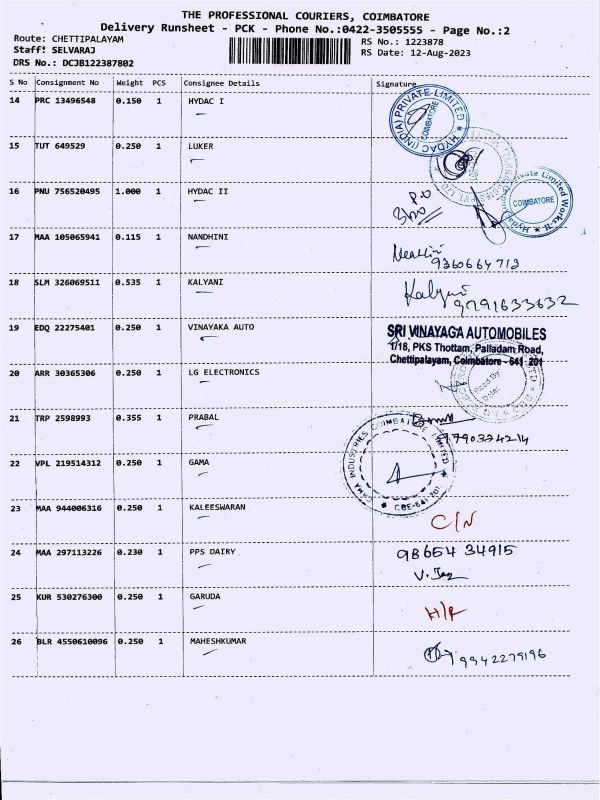 THE PROFESSIONAL COURIERS, COIMBATORE
Delivery Runsheet - PCK - Phone No.:0422-3505555 - Page No.:2
Route: CHETTIPALAYAM
RS No.: 1223878
Staff: SELVARAJ
RS Date: 12-Aug-2023
DRS No.: DCJB122387802
S No Consignment No Weight PCS Consignee Details Signature
14 PRC 13496548 0.150 1 HYDAC I
HYDAC (INDIA) PRIVATE LIMITED
COIMBATORE
15 TUT 649529 0.250 1 LUKER
16 PNU 756520495 1.000 1 HYDAC II
Private Limited Works-II
COIMBATORE
17 MAA 105065941 0.115 1 NANDHINI
9360664713
18 SLM 326069511 0.535 1 KALYANI
Kalyani
9791633632
19 EDQ 22275401 0.250 1 VINAYAKA AUTO
SRI VINAYAGA AUTOMOBILES
1/18, PKS Thottam, Palladam Road,
Chettipalayam, Coimbatore - 641 201
20 ARR 30365306 0.250 1 LG ELECTRONICS
Recd By:
Date:
21 TRP 2598993 0.355 1 PRABAL
22 VPL 219514312 0.250 1 GAMA
GAMA INDUSTRIES COIMBATORE LIMITED
CBE-641 201
23 MAA 944006316 0.250 1 KALEESWARAN
C/N
24 MAA 297113226 0.230 1 PPS DAIRY
98654 34915
25 KUR 530276300 0.250 1 GARUDA
H/R
26 BLR 4550610096 0.250 1 MAHESHKUMAR
9942279196